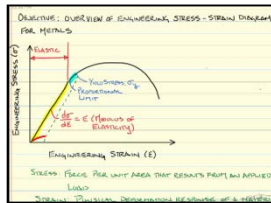 OBJECTIVE: OVERVIEW OF ENGINEERING STRESS-STRAIN DIAGRAM
FOR METALS
ELASTIC
ENGINEERING STRESS (σ)
YIELD STRESS, σy
PROPORTIONAL
LIMIT
dσ/dε = E (MODULUS OF
ELASTICITY)
ENGINEERING STRAIN (ε)
STRESS: FORCE PER UNIT AREA THAT RESULTS FROM AN APPLIED
LOAD
STRAIN: PHYSICAL DEFORMATION RESPONSE OF A